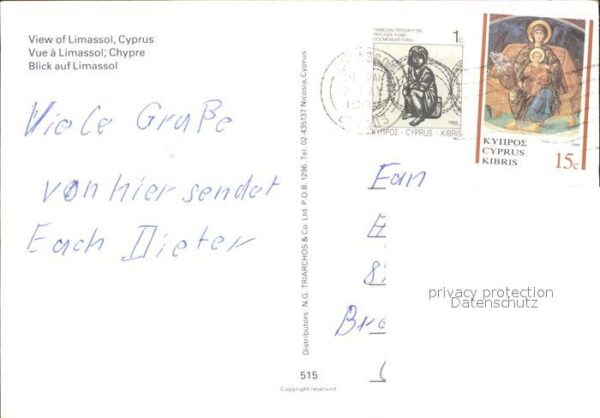 View of Limassol, Cyprus
Vue à Limassol, Chypre
Blick auf Limassol
Viele Grüße
von hier sendet
Euch Dieter
Distributors: N.G. TRIARCHOS & Co. Ltd. P.O.B. 1296, Tel. 02-435137 Nicosia, Cyprus.
515
Copyright reserved
ΤΑΜΕΙΟΝ ΠΡΟΣΦΥΓΩΝ
REFUGEE FUND
GÖÇMENLER FONU
1c
ΚΥΠΡΟΣ - CYPRUS - KIBRIS
ΚΥΠΡΟΣ
CYPRUS
KIBRIS
15c
Fam
privacy protection
Datenschutz